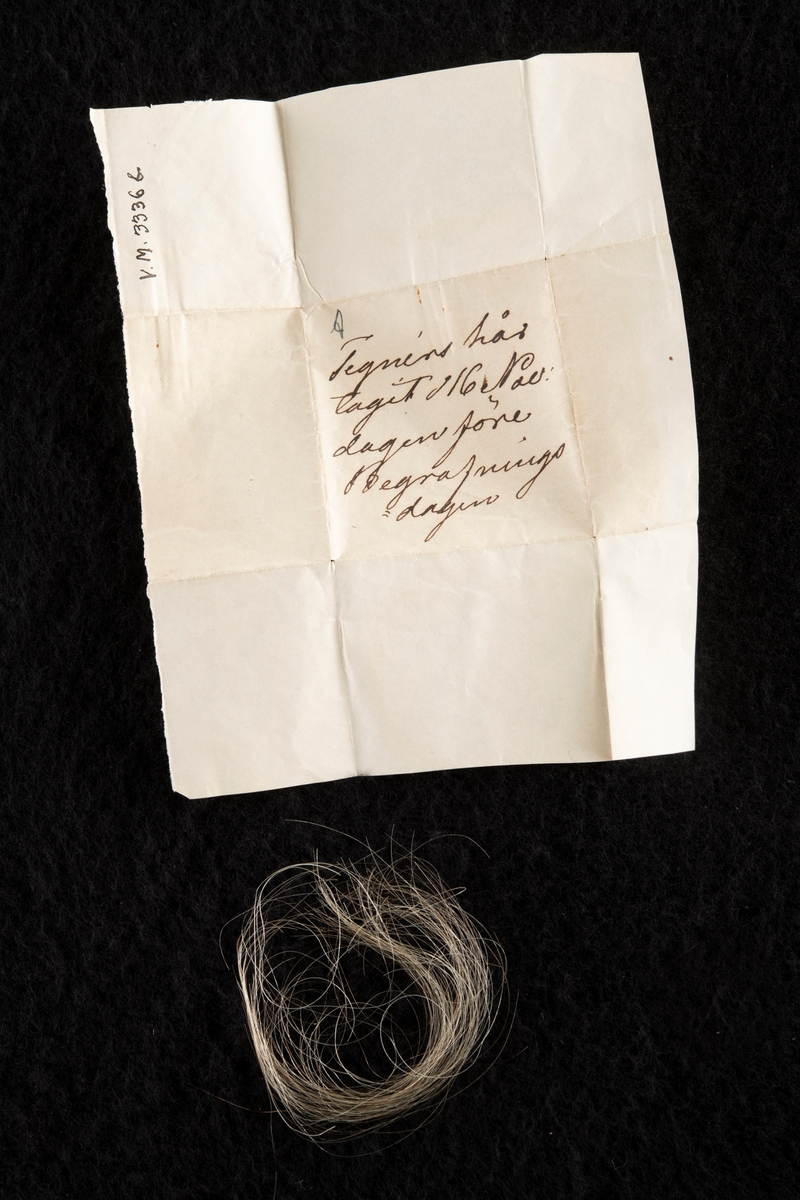 V.M. 3336 b
Tegnérs hår
tagit d 16 Nov:
dagen före
Begrafnings
=dagen